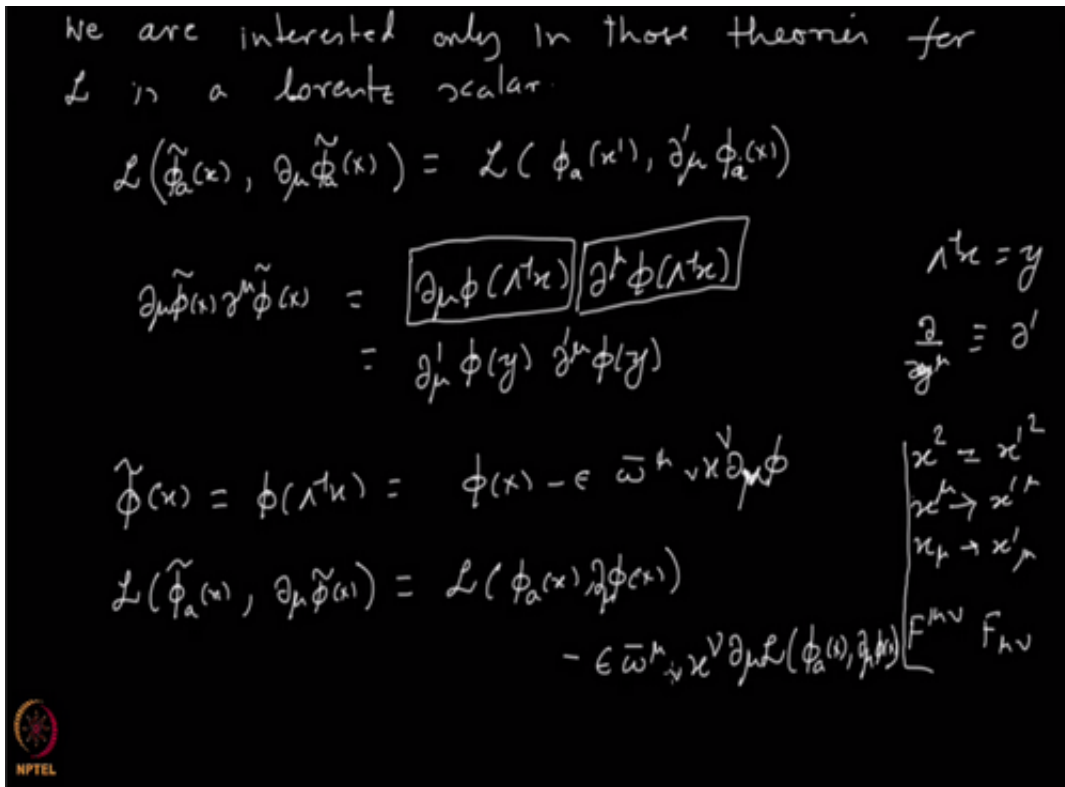 We are interested only in those theories for
L is a Lorentz scalar.
ℒ(φ̃ₐ(x), ∂μφ̃ₐ(x)) = ℒ(φₐ(x'), ∂'μφₐ(x))
Λ⁻¹x = y
∂μφ̃(x) ∂^μφ̃(x) = ∂μφ(Λ⁻¹x) ∂^μφ(Λ⁻¹x)
∂/∂y^μ ≡ ∂'
= ∂'μφ(y) ∂'^μφ(y)
x² = x'²
φ̃(x) = φ(Λ⁻¹x) = φ(x) - ε ω̄^μ_ν x^ν ∂μφ
x^μ → x'^μ
x_μ → x'_μ
ℒ(φ̃ₐ(x), ∂μφ̃(x)) = ℒ(φₐ(x), ∂μφ(x))
- ε ω̄^μ_ν x^ν ∂μℒ(φₐ(x), ∂μφ(x))
F^μν F_μν
NPTEL